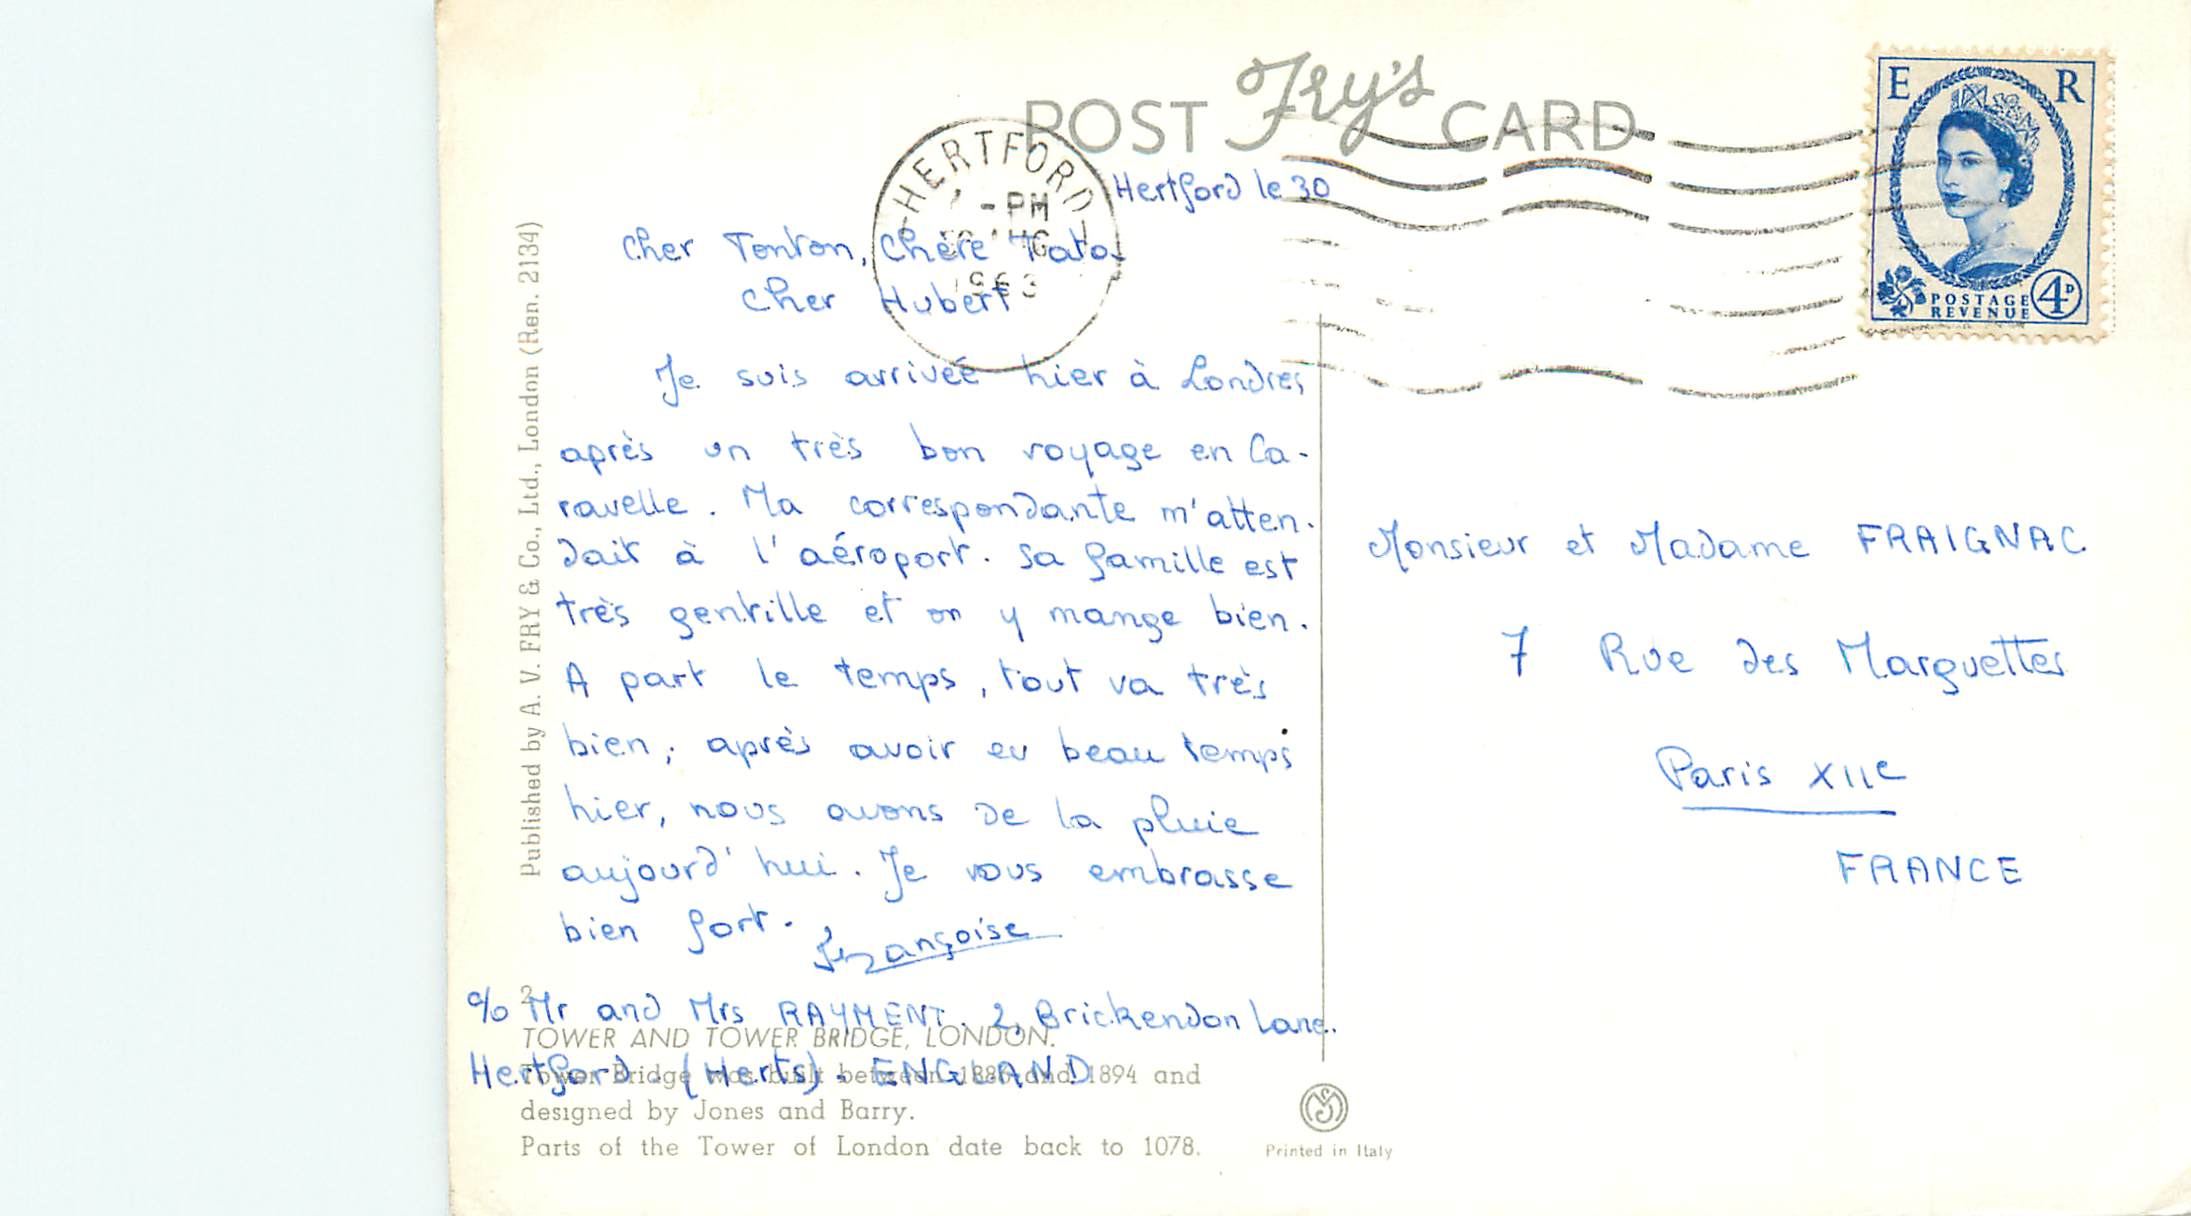 POST Fry's CARD
E R
POSTAGE
REVENUE
4D
HERTFORD
- PM
AUG
1963
Hertford le 30
Cher Tonton, Chère Tata
Cher Hubert
Je suis arrivée hier à Londres
après un très bon voyage en Ca-
ravelle. Ma correspondante m'atten-
dait à l'aéroport. Sa famille est
très gentille et on y mange bien.
A part le temps, tout va très
bien, après avoir eu beau temps
hier, nous avons de la pluie
aujourd'hui. Je vous embrasse
bien fort.
Françoise
c/o Mr and Mrs RAYMENT. 2, Brickendon Lane.
Hertford (Herts). ENGLAND
Monsieur et Madame FRAIGNAC
7 Rue des Marguettes
Paris XIIe
FRANCE
Published by A. V. FRY & Co., Ltd., London (Ren. 2134)
2
TOWER AND TOWER BRIDGE, LONDON.
Tower Bridge was built between 1886 and 1894 and
designed by Jones and Barry.
Parts of the Tower of London date back to 1078.
Printed in Italy